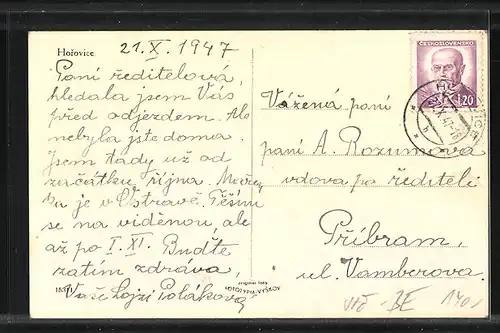 Hořovice
21.X.1947
Paní ředitelová,
hledala jsem Vás
před odjezdem. Ale
nebyla jste doma.
Jsem tady už od
začátku října.
ka je v Ostravě. Těším
se na viděnou, ale
až po 1. XI. Buďte
zatím zdráva,
Vaše Lojzi Poláková
ČESKOSLOVENSKO
1.20
Vážená paní
paní A. Rozumova
vdova po řediteli
Příbram,
ul. Vamberova.
original foto
FOTOTYPIA-VYŠKOV